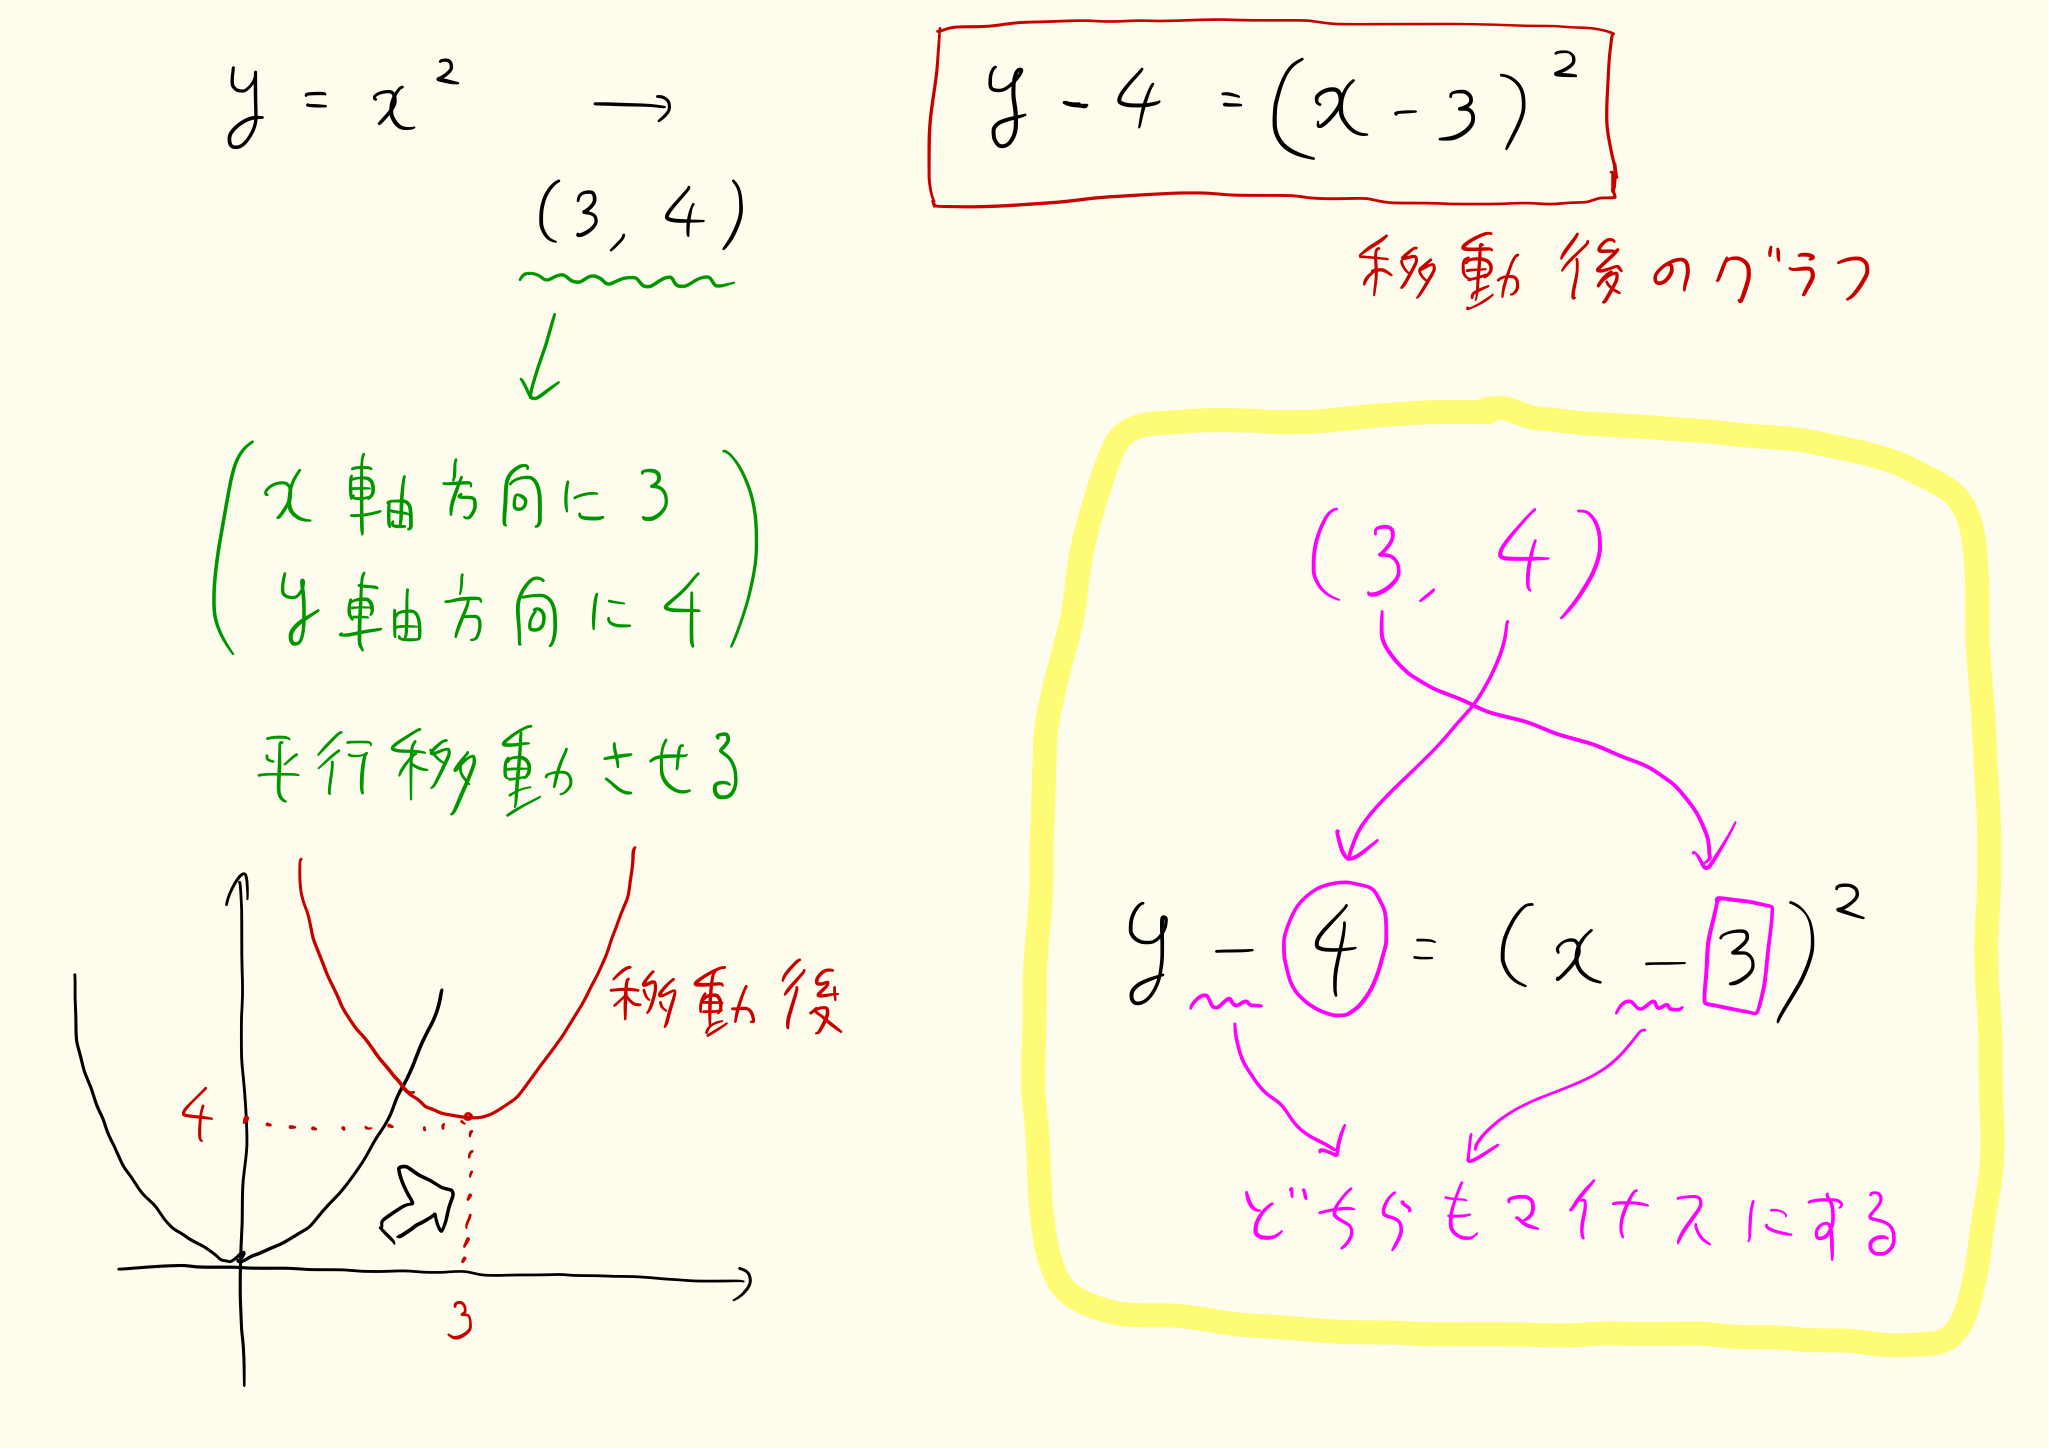 y = x² → y - 4 = (x - 3)²
(3, 4)
移動後のグラフ
x軸方向に3
y軸方向に4
平行移動させる
移動後
4
3
(3, 4)
y - 4 = (x - 3)²
どちらもマイナスにする